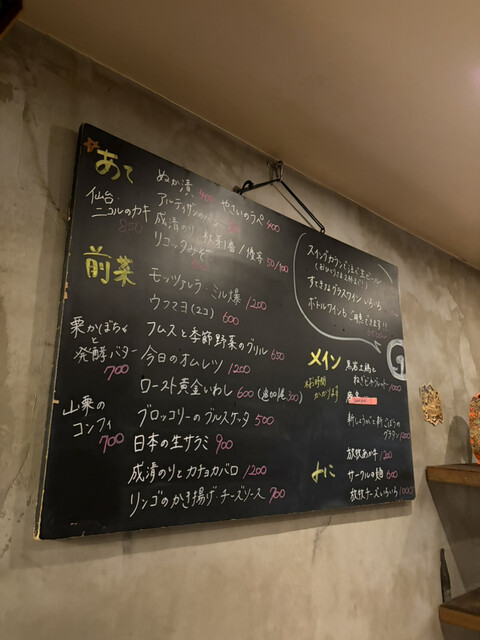 あて
ぬか漬 400 やさいのラペ 400
仙台
ニコルのカキ
850
アルティザンの
成清のり
リコッタみそ
前菜
モッツァレラ ミル爆 1200
ウフマヨ(2コ) 600
栗かぼちゃ
と
発酵バター
700
フムスと季節野菜のグリル 650
今日のオムレツ 1200
ロースト黄金いわし 600 (追加1尾300)
山栗の
コンフィ
700
ブロッコリーのブルスケッタ 500
日本の生サラミ 900
成清のりとカチョカパロ 1200
リンゴのかき揚げチーズソース 700
スイングカウンではまビール
すてきなグラスワインいろいろ
ボトルワインも ご用意できます!!
メイン
お時間
かかります
黒岩土鶏と
新しょうがと新ごぼうの
グラタン
よに
放牧あか牛 1200
サークルの麺 600
放牧チーズいろいろ 1000